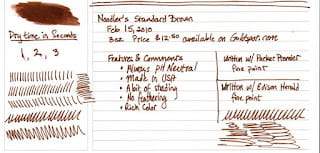 Noodler's Standard Brown
Feb 15, 2010
3oz Price $12.50 available on Goldspot.com
Dry time in Seconds
1, 2, 3
Features & Comments
• Always pH Neutral
• Made in USA
• A bit of shading
• No feathering
• Rich Color
Written w/ Parker Premier
fine point
Written w/ Edison Herald
fine point